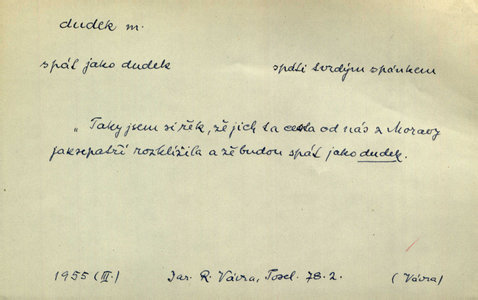 dudek m.
spát jako dudek spáti tvrdým spánkem
„Taky jsem si řek, že jich ta cesta od nás z Moravy
jaksepatří rozklížila a že budou spát jako dudek.
1955 (III.) Jar. R. Vávra, Posel. 78.2. (Vávra)